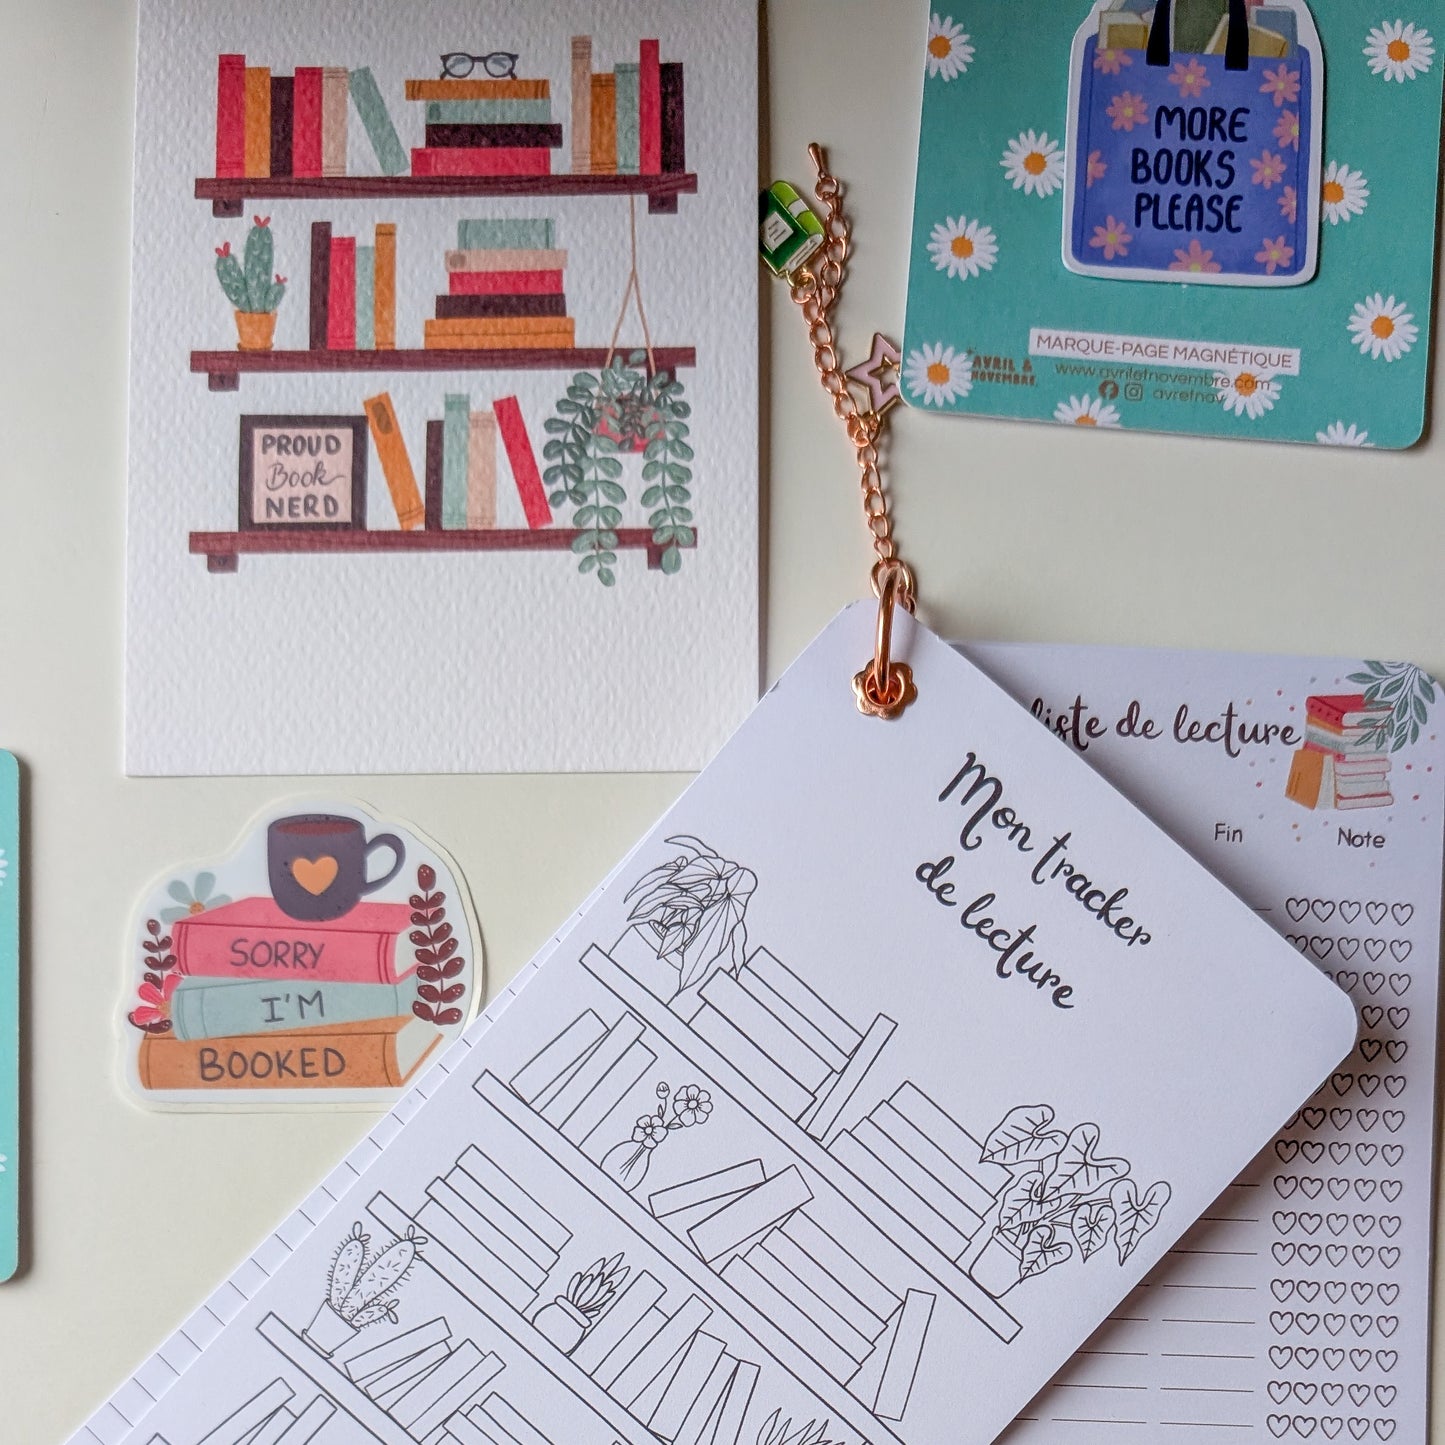 PROUD
Book
NERD
MORE
BOOKS
PLEASE
MARQUE-PAGE MAGNÉTIQUE
www.avriletnovembre.com
avretnov
AVRIL &
NOVEMBRE
SORRY
I'M
BOOKED
Mon tracker
de lecture
liste de lecture
Fin Note